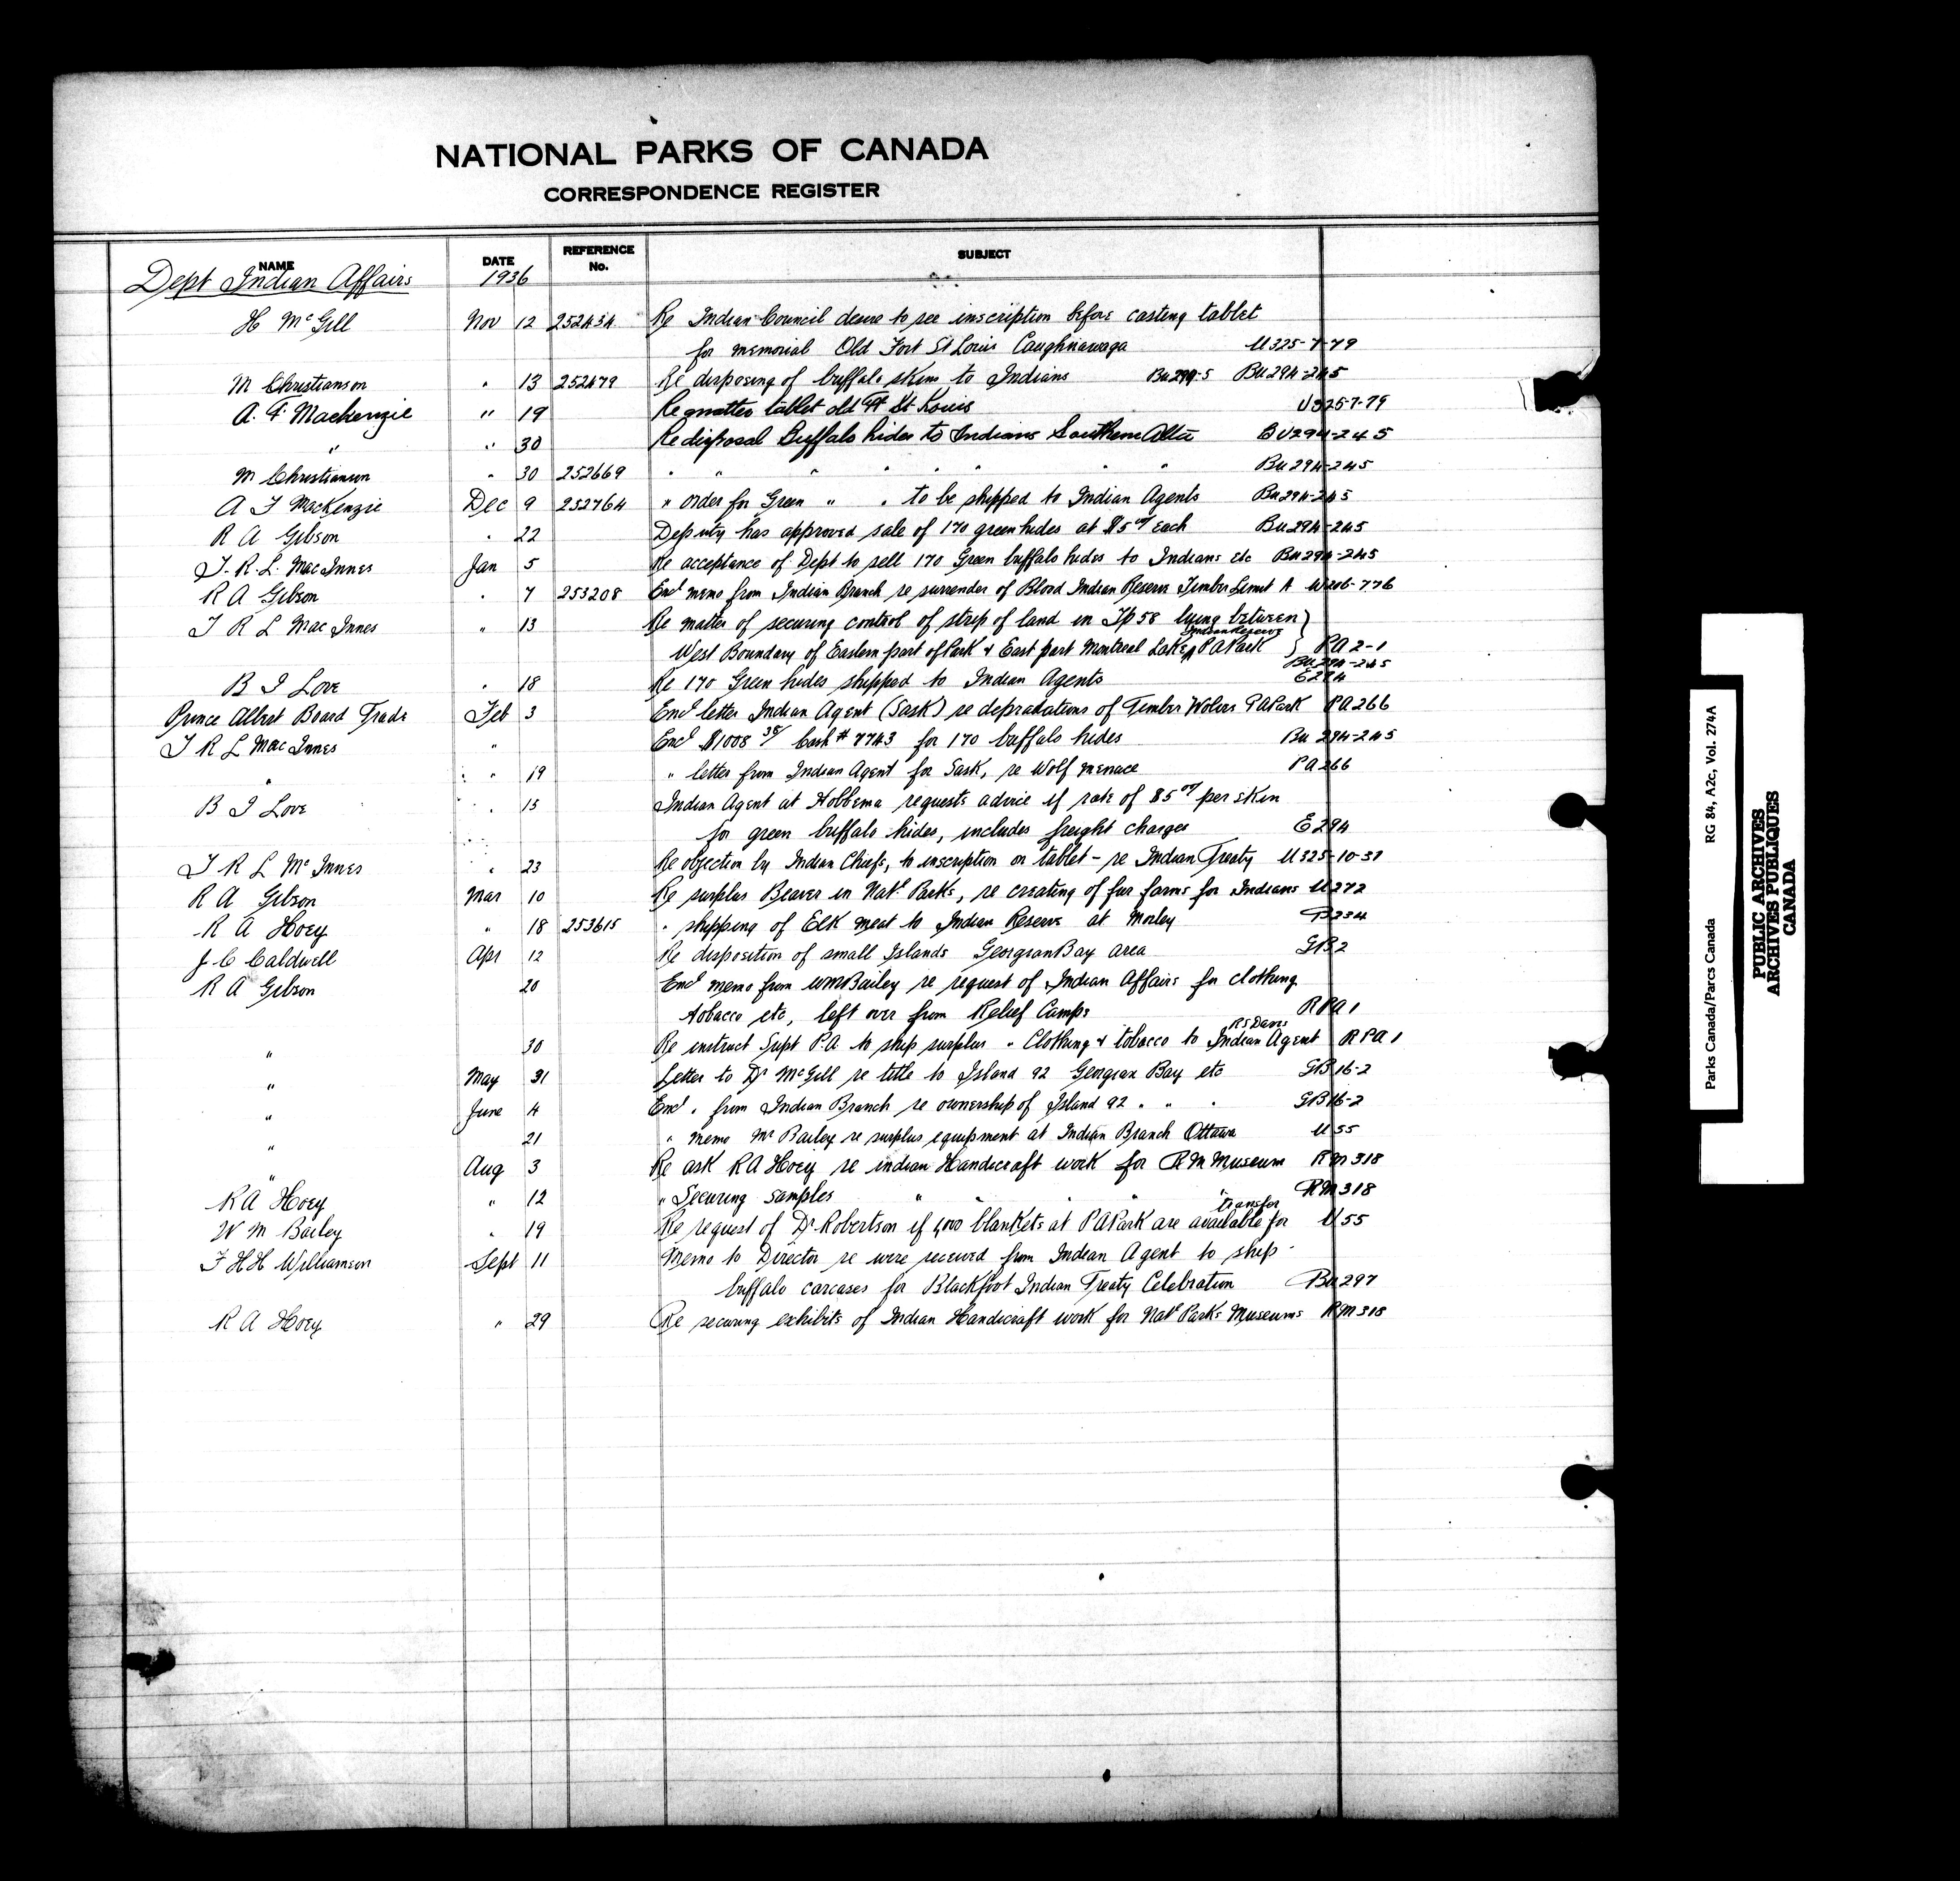 NATIONAL PARKS OF CANADA
CORRESPONDENCE REGISTER
NAME DATE REFERENCE No. SUBJECT
Dept Indian Affairs 1936
H McGill Nov 12 252454 Re Indian Council desire to see inscription before casting tablet
for memorial Old Fort St Louis Caughnawaga U325-7-79
M Christianson " 13 252479 Re disposing of buffalo skins to Indians Bu299-5 Bu294-245
A. F. Mackenzie " 19 Re matter tablet old Ft St Louis U325-7-79
" " 30 Re disposal Buffalo hides to Indians Southern Alta BU294-245
M Christianson " 30 252669 " " " " " " " " Bu294-245
A F MacKenzie Dec 9 252764 " order for Green " " to be shipped to Indian Agents Bu294-245
R A Gibson " 22 Deputy has approved sale of 170 green hides at $5 00/ each Bu294-245
T. R. L. MacInnes Jan 5 Re acceptance of Dept to sell 170 Green buffalo hides to Indians etc Bu294-245
R A Gibson " 7 253208 Encl memo from Indian Branch re surrender of Blood Indian Reserve Timber Limit A W206-776
T R L MacInnes " 13 Re matter of securing control of strip of land in Tp 58 lying between
West Boundary of Eastern part of Park & East part Montreal Lake Indian Reserve PA Park PA 2-1
Bu294-245
B I Love " 18 Re 170 Green hides shipped to Indian Agents E294
Prince Albert Board Trade Feb 3 Encl letter Indian Agent (Sask) re depradations of Timber Wolves PA Park PA266
T R L MacInnes " Encl $1008 38/ Cash # 7743 for 170 buffalo hides Bu 294-245
" " 19 " letter from Indian Agent for Sask, re Wolf menace PA266
B I Love " 15 Indian Agent at Hobbema requests advice if rate of $5 00/ per skin
for green buffalo hides, includes freight charges E294
T R L McInnes " 23 Re objection by Indian Chiefs, to inscription on tablet - re Indian Treaty U325-10-31
R A Gibson Mar 10 Re surplus Beaver in Natl Parks, re creating of fur farms for Indians U272
R A Hoey " 18 253615 " shipping of Elk meat to Indian Reserve at Morley B234
J C Caldwell Apr 12 Re disposition of small Islands Georgian Bay area GB2
R A Gibson 20 Encl memo from WM Bailey re request of Indian Affairs for clothing
tobacco etc, left over from Relief Camps RPA1
R S Davis
" 30 Re instruct Supt P.A to ship surplus " Clothing & tobacco to Indian Agent RPA1
" May 31 Letter to Dr McGill re title to Island 92 Georgian Bay etc GB16-2
" June 4 Encl " from Indian Branch re ownership of Island 92 " " " GB16-2
" 21 " memo Mr Bailey re surplus equipment at Indian Branch Ottawa U55
" Aug 3 Re ask R A Hoey re indian Handicraft work for RM Museum RM318
R A Hoey " 12 " Securing samples " " " " RM318
transfer
W M Bailey " 19 Re request of Dr Robertson if 4,000 blankets at PA Park are available for U55
F H H Williamson Sept 11 Memo to Director re wire received from Indian Agent to ship
buffalo carcases for Blackfoot Indian Treaty Celebration Bu297
R A Hoey " 29 Re securing exhibits of Indian Handicraft work for Natl Parks Museums RM318
Parks Canada/Parcs Canada RG 84, A2c, Vol. 274A
PUBLIC ARCHIVES
ARCHIVES PUBLIQUES
CANADA